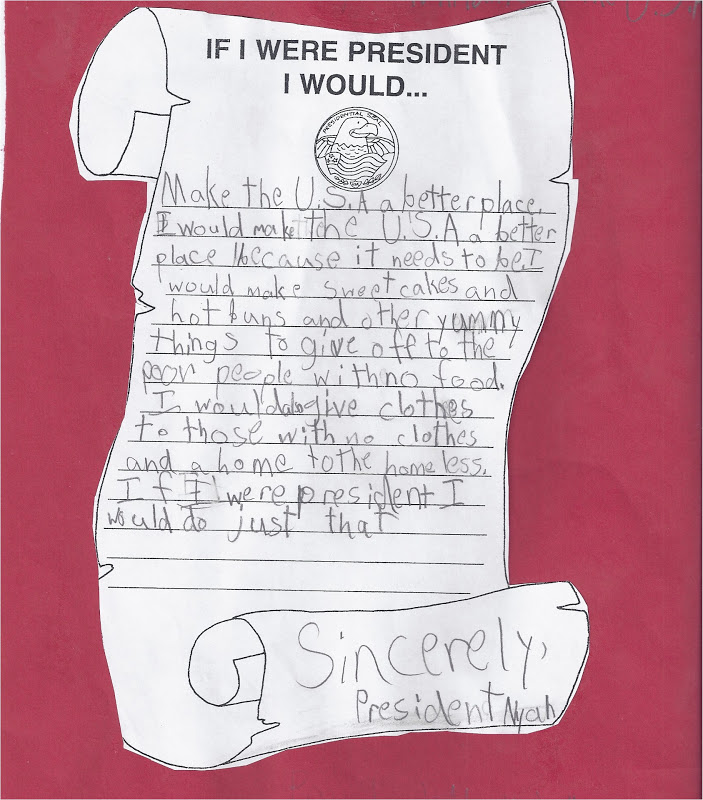 IF I WERE PRESIDENT
I WOULD...
PRESIDENTIAL SEAL
Make the U.S.A a better place.
I would make the U.S.A. a better
place because it needs to be. I
would make sweet cakes and
hot buns and other yummy
things to give off to the
poor people with no food.
I would also give clothes
to those with no clothes
and a home to the homeless.
If I were president I
would do just that
Sincerely,
President Nyah